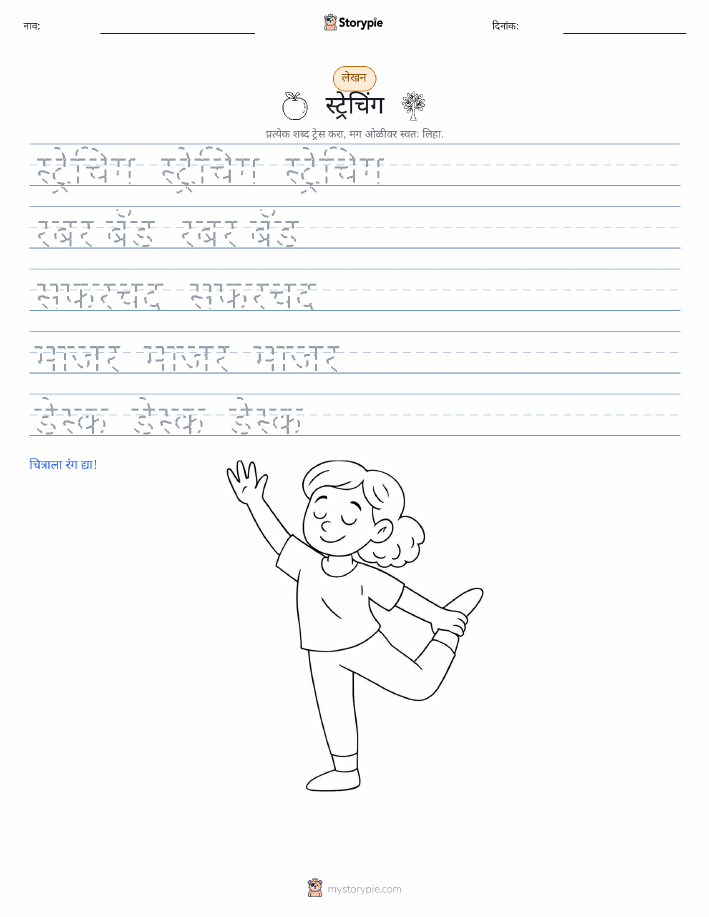 नाव:
Storypie
दिनांक:
लेखन
स्ट्रेचिंग
प्रत्येक शब्द ट्रेस करा, मग ओळीवर स्वतः लिहा.
स्ट्रेचिंग स्ट्रेचिंग स्ट्रेचिंग
रबर बँड रबर बँड
सफरचंद सफरचंद
माजर माजर माजर
डेस्क डेस्क डेस्क
चित्राला रंग द्या!
mystorypie.com